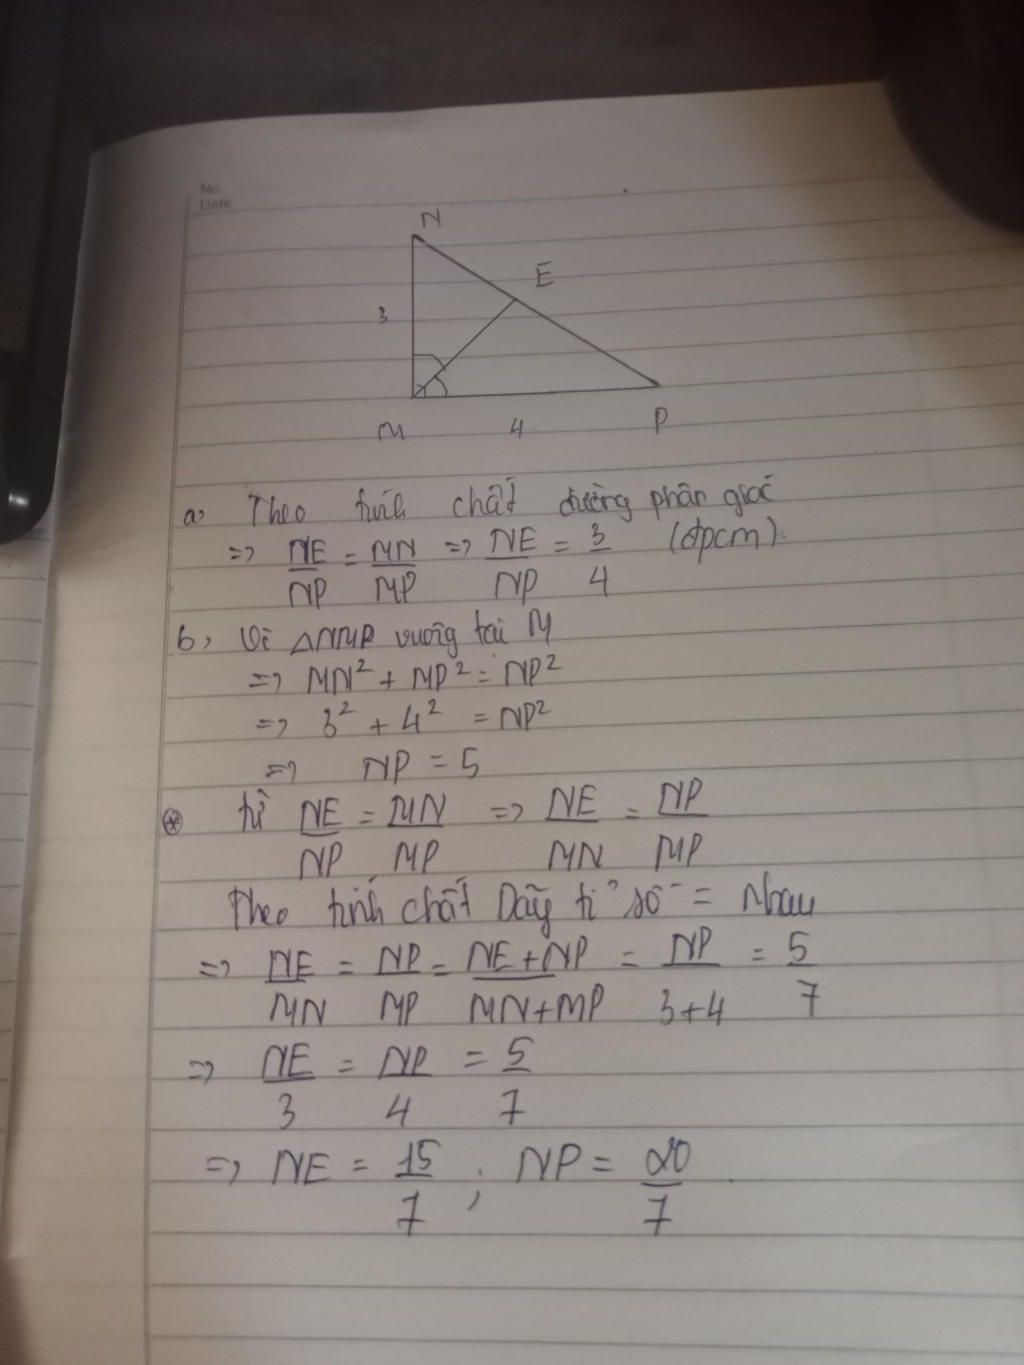 No.
Date
N
E
3
M
4
P
a, Theo tính chất đường phân giác
=> NE/NP = MN/MP => NE/NP = 3/4 (đpcm).
b, Vì △NMP vuông tại M
=> MN² + MP² = NP²
=> 3² + 4² = NP²
=> NP = 5
⊛ từ NE/NP = MN/MP => NE/MN = NP/MP
Theo tính chất Dãy tỉ số = Nhau
=> NE/MN = NP/MP = NE+NP/MN+MP = NP/3+4 = 5/7
=> NE/3 = NP/4 = 5/7
=> NE = 15/7 ; NP = 20/7